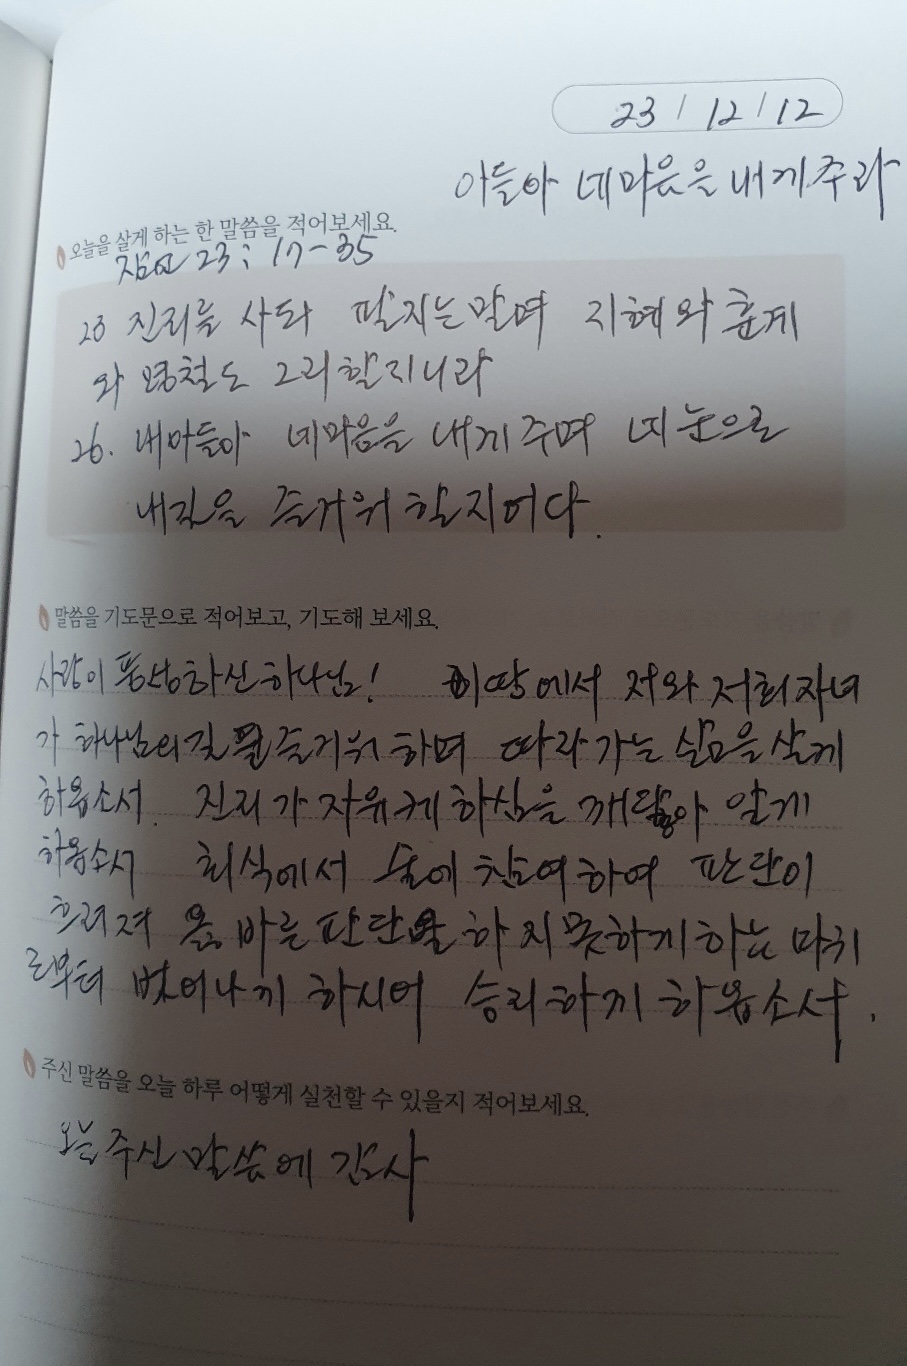 23 / 12 / 12
아들아 네마음을 내게 주라
오늘을 살게 하는 한 말씀을 적어보세요.
잠언 23 : 17-35
23 진리를 사되 팔지는말며 지혜와 훈계
와 명철도 그리할지니라
26. 내아들아 네마음을 내게 주며 네 눈으로
내길을 즐거워 할지어다.
말씀을 기도문으로 적어보고, 기도해 보세요.
사랑이 풍성하신 하나님! 이땅에서 저와 저희자녀
가 하나님의길 을 즐거워 하며 따라가는 삶을 살게
하옵소서. 진리가 자유케하심을 깨달아 알게
하옵소서 회식에서 술에 참여하여 판단이
흐려져 올바른 판단을 하지못하게하는 마귀
로부터 벗어나게 하시어 승리하게 하옵소서.
주신 말씀을 오늘 하루 어떻게 실천할 수 있을지 적어보세요.
오늘 주신 말씀에 감사